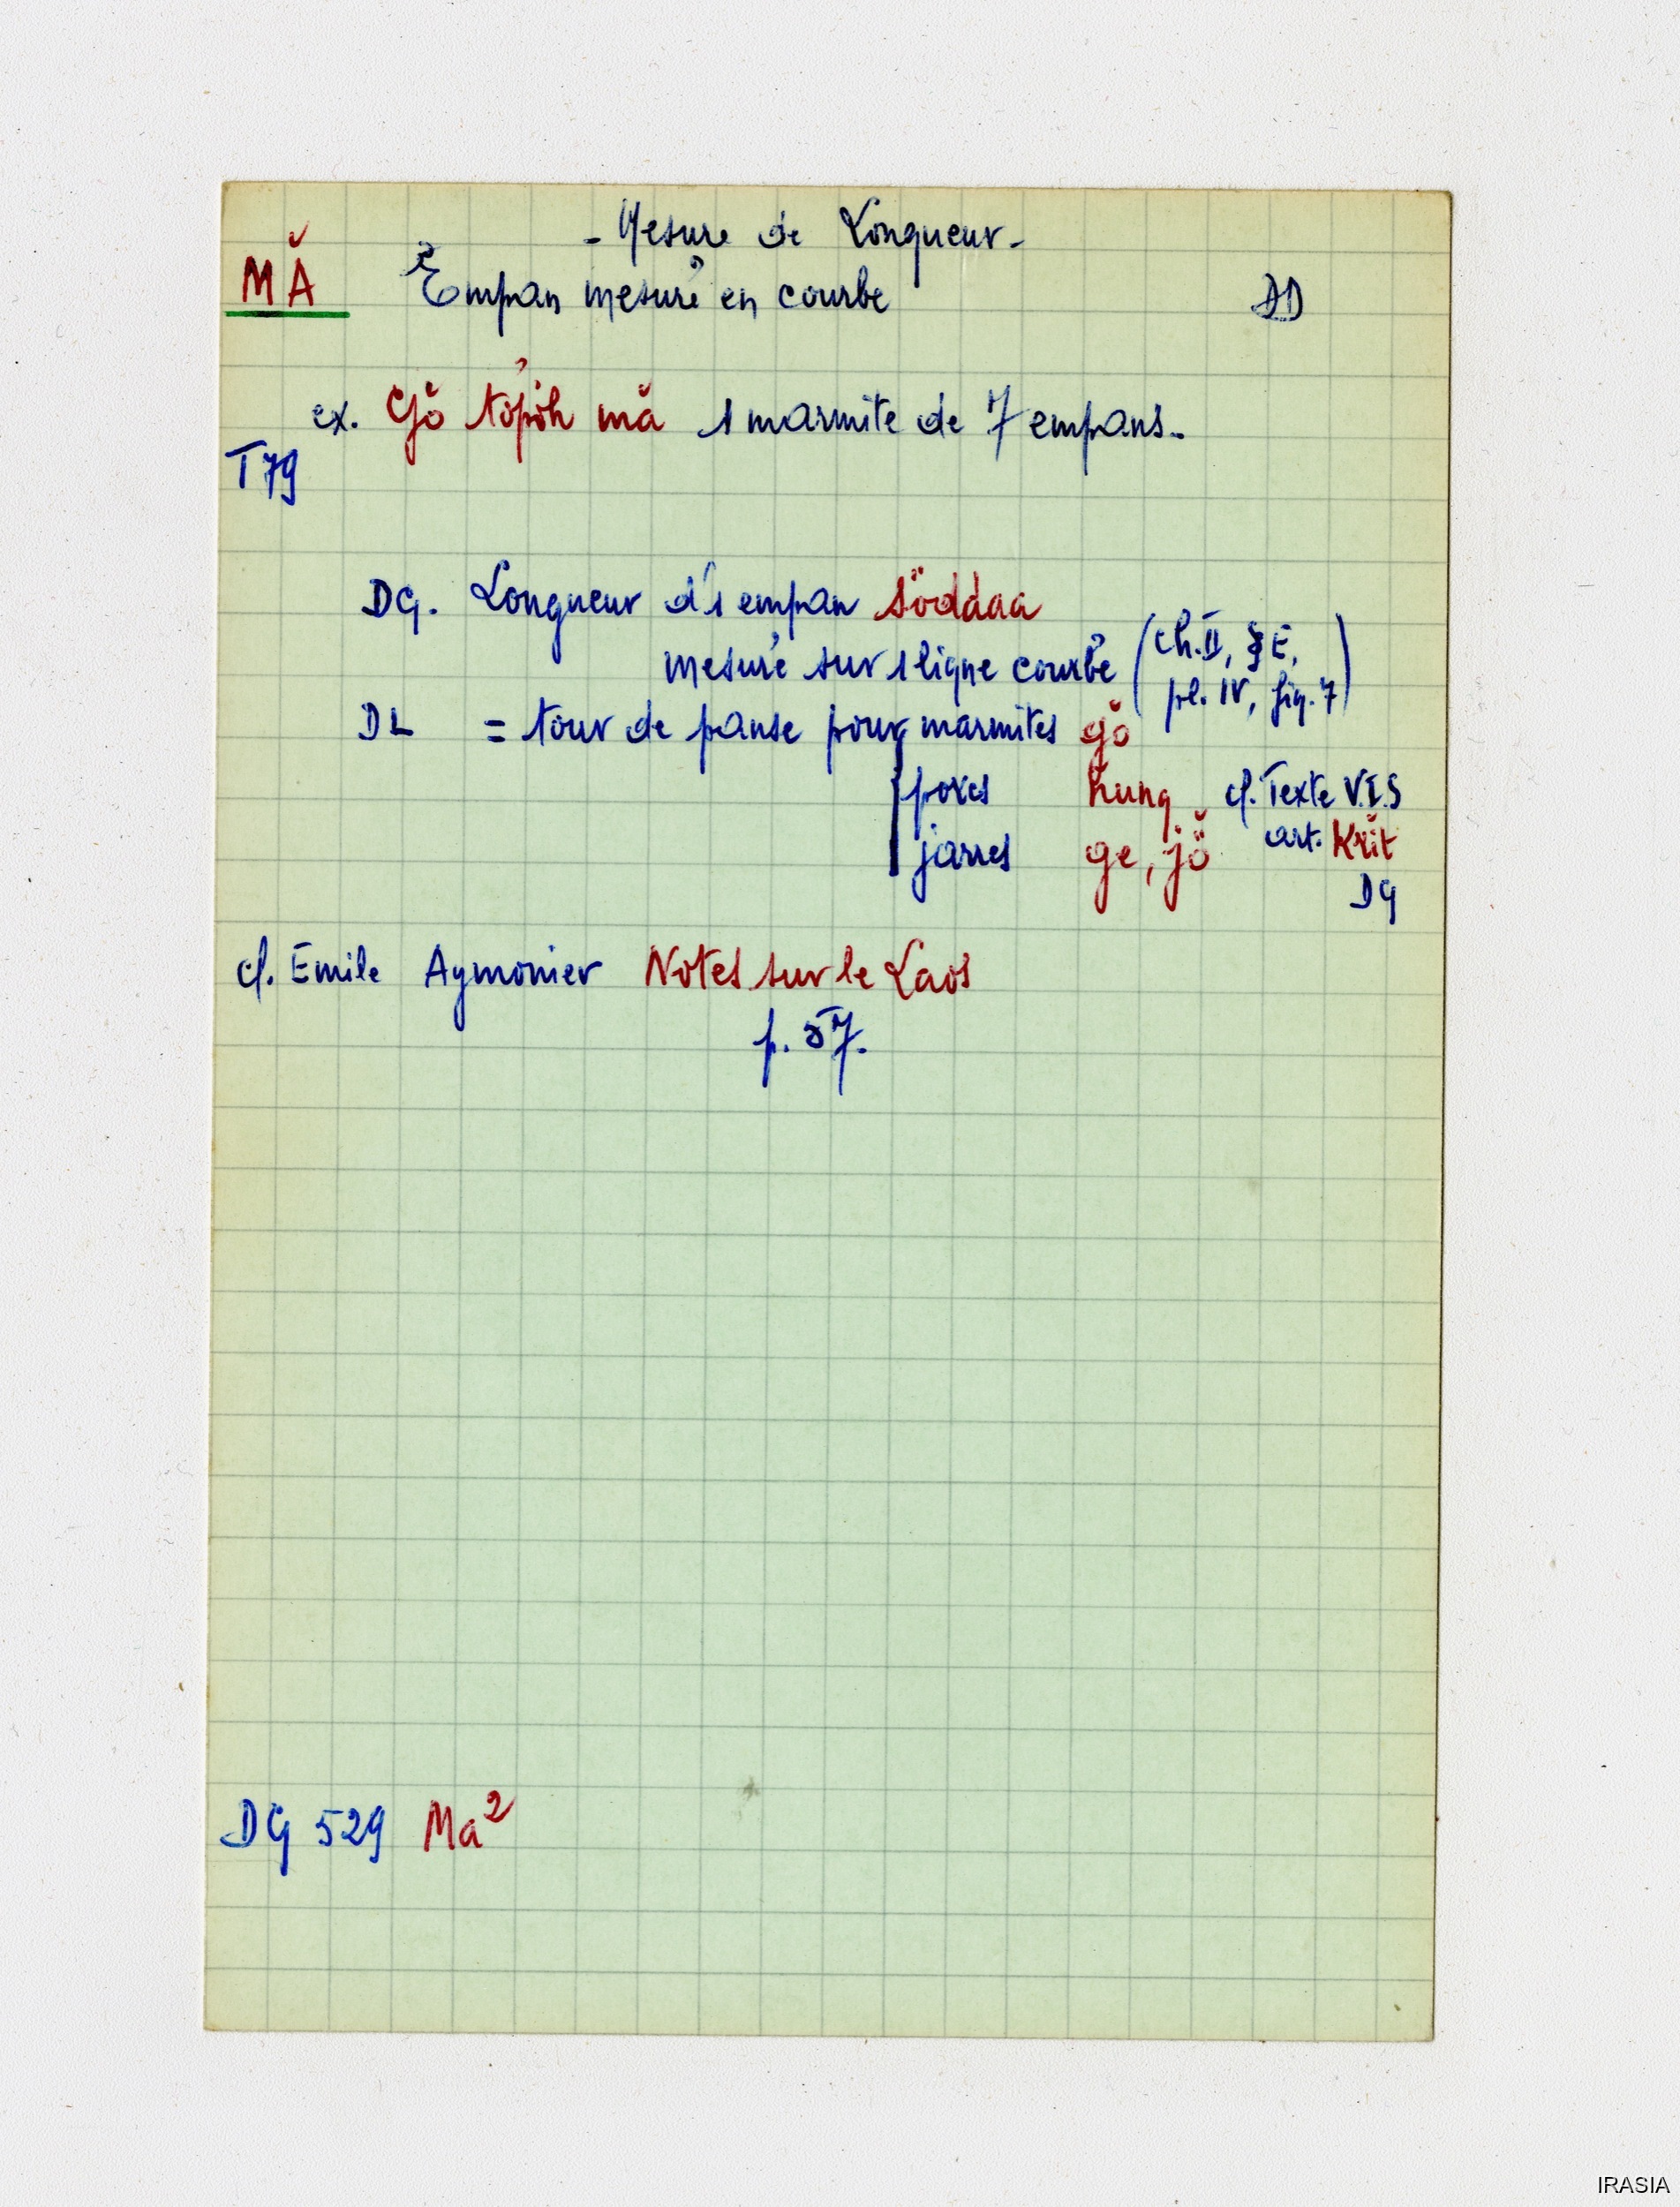 - Mesure de Longueur -
MĂ Empan mesuré en courbe DD
ex. Gŏ tŏpŏh mă 1 marmite de 7 empans.
T79
DG. Longueur d'1 empan söddaa
mesuré sur 1 ligne courbe (ch. II, § E,
pl. IV, fig. 7)
DL = tour de panse pour marmites gŏ
porcs hung cf. Texte V.I.S
jarres ge, jŏ art. Krit
DG
cf. Emile Aymonier Notes sur le Laos
p. 57.
DG 529 Ma²
IRASIA